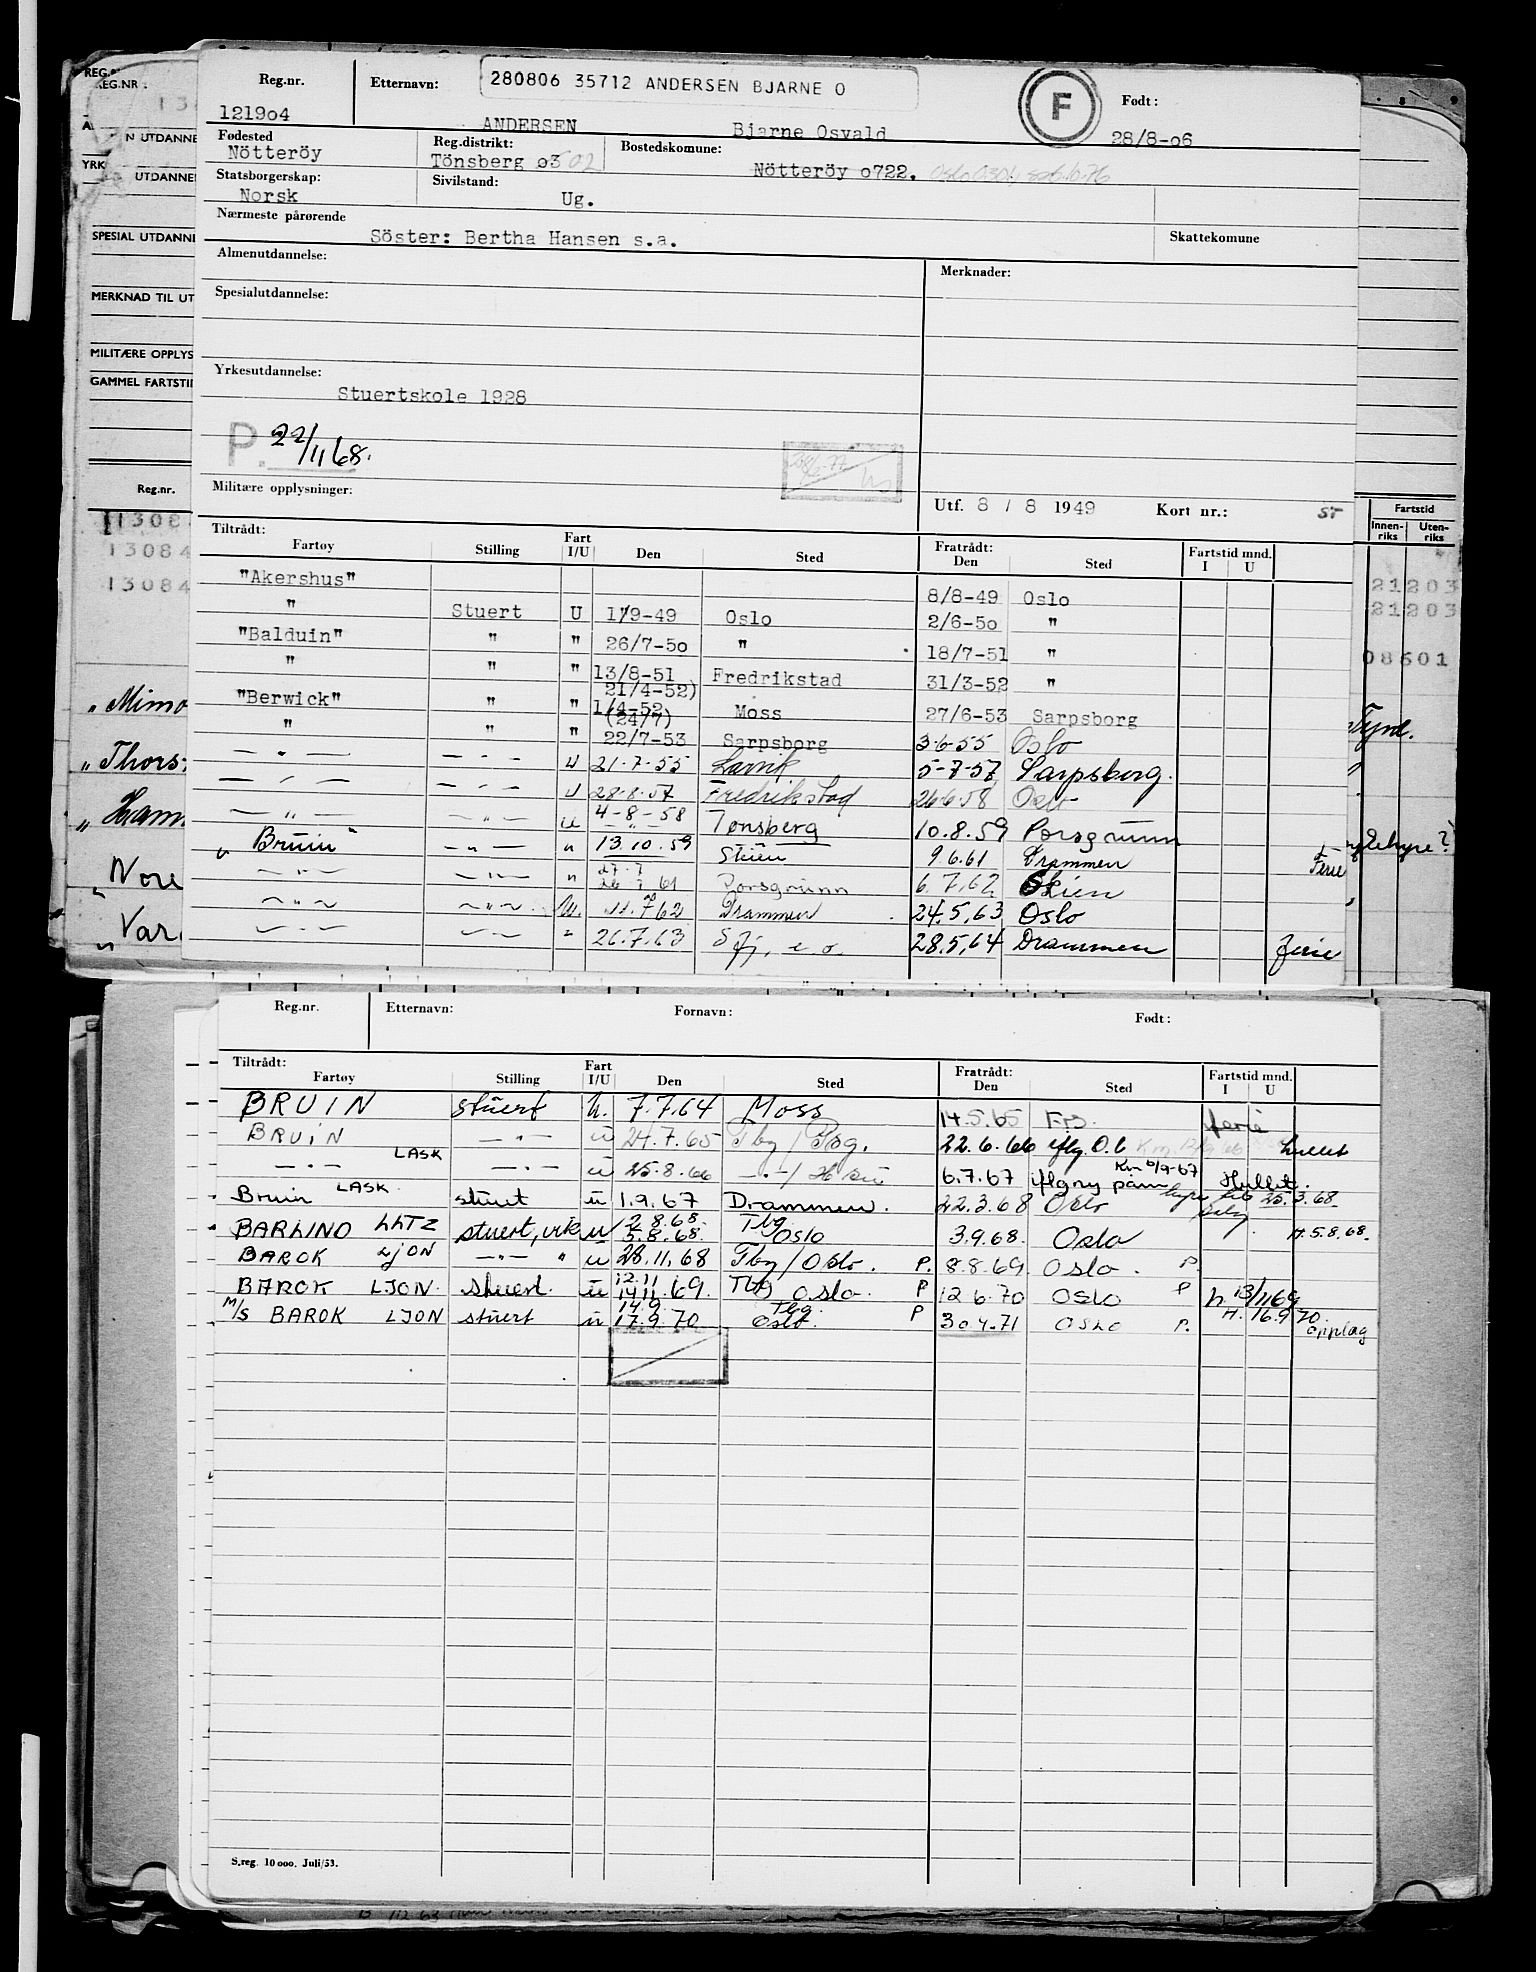 REG.NR :
Reg.nr. Etternavn: 280806 35712 ANDERSEN BJARNE O F Født :
121904 ANDERSEN Bjarne Osvald 28/8-o6
Fødested Reg.distrikt: Bostedskomune:
Nötteröy Tönsberg o3 02 Nötteröy o722.
Statsborgerskap: Sivilstand:
Norsk Ug.
Nærmeste pårørende
Söster: Bertha Hansen s.a. Skattekomune
Almenutdannelse: Merknader:
Spesialutdannelse:
Yrkesutdannelse:
Stuertskole 1928
P. 22/11 68.
Militære opplysninger: Utf. 8 / 8 1949 Kort nr.: ST
Tiltrådt: Fratrådt:
Fartøy Stilling Fart I/U Den Sted Den Sted Fartstid mnd. I U
"Akershus" 8/8-49 Oslo
" Stuert U 1/9-49 Oslo 2/6-5o "
"Balduin" " " 26/7-5o " 18/7-51 "
" " " 13/8-51 Fredrikstad 31/3-52 "
21/4-52)
"Berwick" " " 1/4-52 Moss 27/6-53 Sarpsborg
(24/7)
" " " 22/7-53 Sarpsborg 3-6-55 Oslo
— " — — " — U 21-7-55 Larvik 5-7-57 Sarpsborg.
— " — — " — U 28-8-57 Fredrikstad 26-6-58 Oslo
— " — — " — u 4-8-58 Tønsberg 10.8.59 Porsgrunn
"Bruin" — " — " 13.10.59 Skien 9.6.61 Drammen Ferie
27.7
— " — — " — " 26.7.61 Porsgrunn 6.7.62 Skien
— " — — " — U. 11.7.62 Drammen 24.5.63 Oslo
— " — — " — " 26.7.63 28.5.64 Drammen ferie
REG.NR
N UTDANNE
YRK
UTDANNE
SPESIAL UTDANNE
MERKNAD TIL UT
MILITÆRE OPPLYS
GAMMEL FARTSTI
Reg.nr.
1308
13084
13084
"Mimo
"Thors
"Ham
"Nore
"Var
Fartstid
Innen-riks Uten-riks
21203
21203
08601
Reg.nr. Etternavn: Fornavn: Født:
Tiltrådt: Fratrådt:
Fartøy Stilling Fart I/U Den Sted Den Sted Fartstid mnd. I U
BRUIN stuert U. 7.7.64 Moss 14.5.65 ferie
BRUIN — " — u 24.7.65 Tbg / Psg. 22.6.66
— " — LASK — " — u 25.8.66 6.7.67
Bruin LASK stuert u 1.9.67 Drammen. 22.3.68 Oslo 25.3.68
2.8.68. Tbg
BARLIND LHTZ stuert, vik u 5.8.68. Oslo 3.9.68. Oslo H.5.8.68.
BAROK LJON — " — " u 28.11.68 Tbg / Oslo. P. 8.8.69. Oslo. P.
12.11 Tbg
BAROK LJON. stuert. u 14.11.69. Oslo. P 12.6.70 Oslo P h 13/11 69
14.9. Tbg.
M/S BAROK LJON stuert u 17.9.70 Oslo. P 30.4.71 OSLO P. H. 16.9.70.
opplag
S.reg. 10 000. Juli/53.